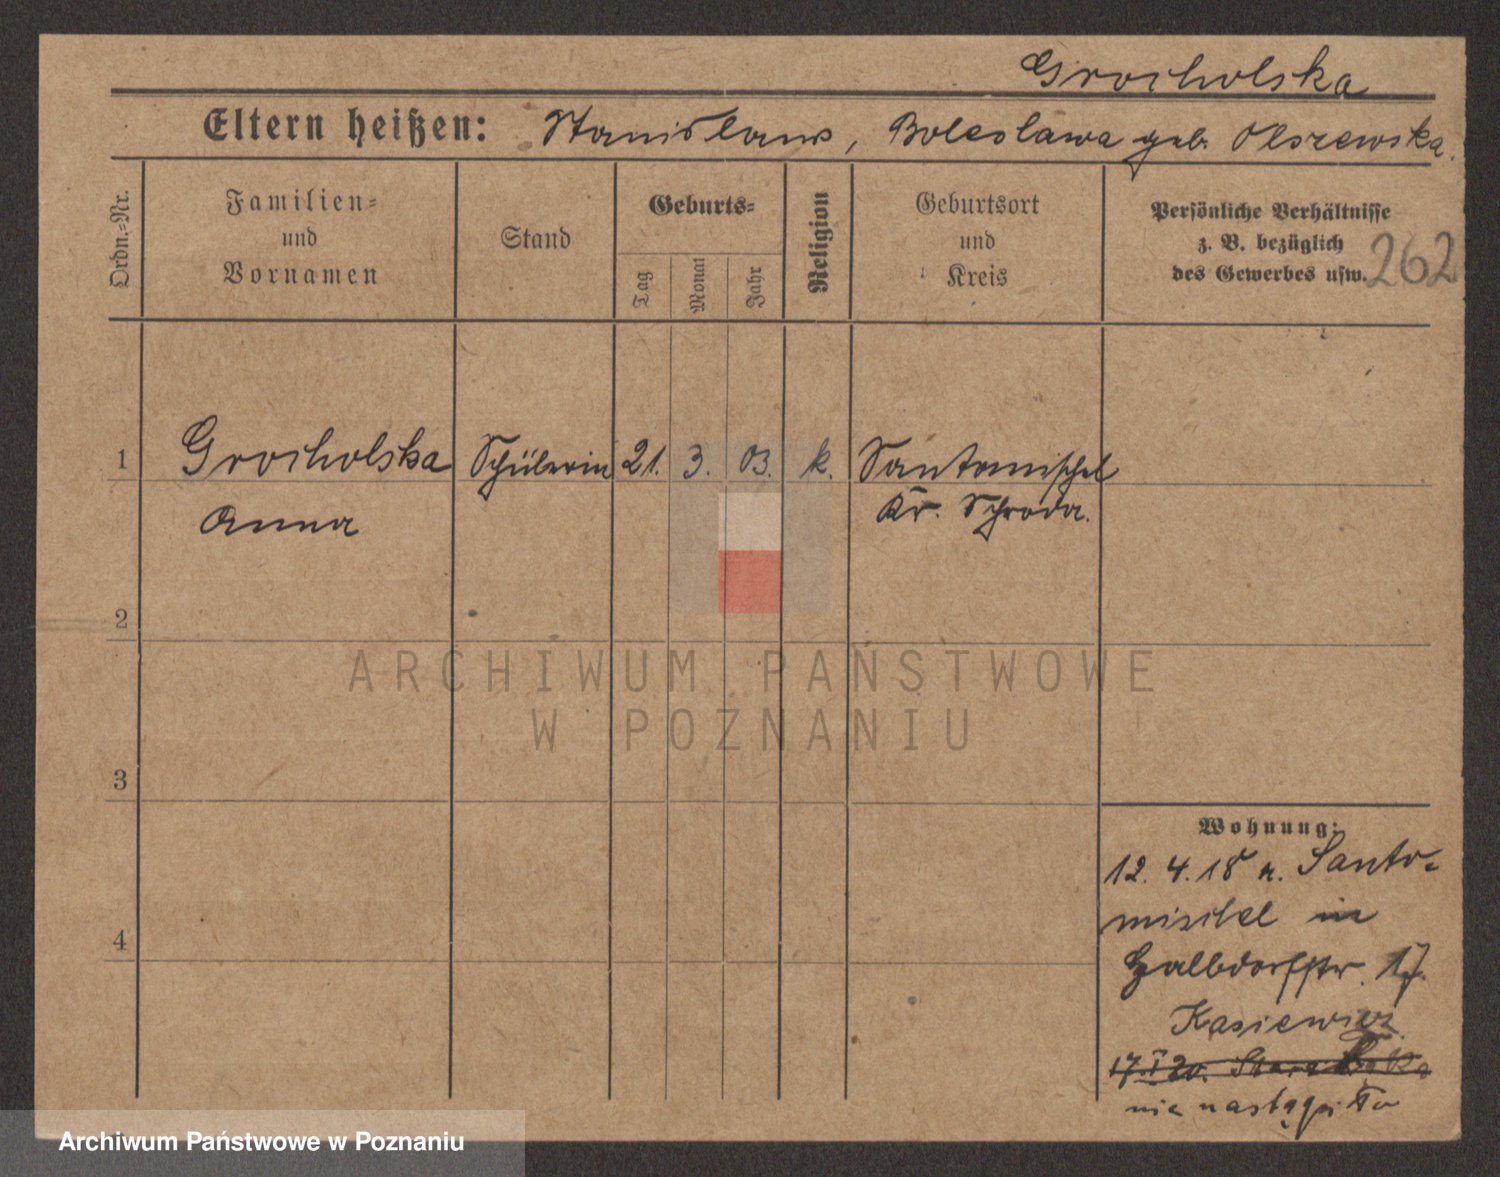 Grocholska
Eltern heißen: Stanislaus, Boleslawa geb. Olszewska.
Ordn.-Nr.
Familien-
und
Vornamen
Stand
Geburts-
Tag
Monat
Jahr
Religion
Geburtsort
und
Kreis
Persönliche Verhältnisse
z. B. bezüglich
des Gewerbes usw.
262
1 Grocholska Schülerin 21. 3. 03. k. Santomischel
Anna Kr. Schroda.
2
ARCHIWUM PAŃSTWOWE
W POZNANIU
3
Wohnung:
12. 4. 18 v. Santo-
mischel in
4
Halbdorfstr. 17.
Kasiewicz
17.I 20.
nie nastąpiło
Archiwum Państwowe w Poznaniu